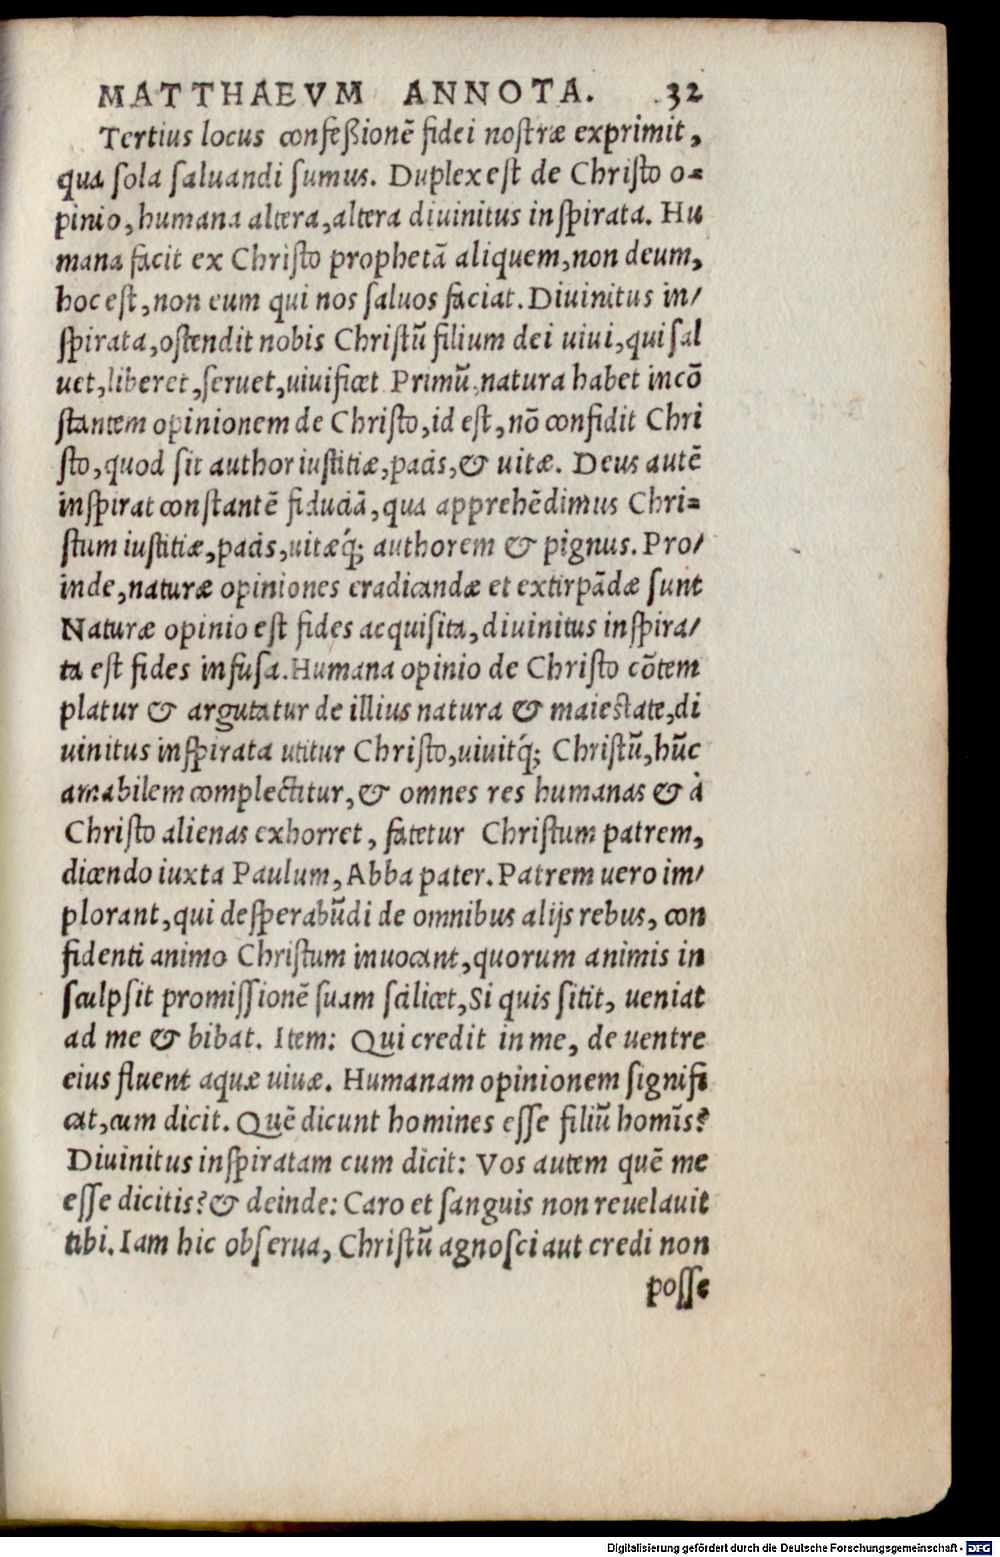 MATTHAEVM ANNOTA. 32
Tertius locus confeßionē fidei nostræ exprimit,
qua sola saluandi sumus. Duplex est de Christo o-
pinio, humana altera, altera diuinitus inspirata. Hu
mana facit ex Christo prophetā aliquem, non deum,
hoc est, non eum qui nos saluos faciat. Diuinitus in/
spirata, ostendit nobis Christū filium dei uiui, qui sal
uet, liberet, seruet, uiuificet Primū, natura habet incō
stantem opinionem de Christo, id est, nō confidit Chri
sto, quod sit author iustitiæ, pacis, & uitæ. Deus autē
inspirat constantē fiduciā, qua apprehēdimus Chri-
stum iustitiæ, pacis, uitæq́; authorem & pignus. Pro/
inde, naturæ opiniones eradicandæ et extirpādæ sunt
Naturæ opinio est fides acquisita, diuinitus inspira/
ta est fides infusa. Humana opinio de Christo cōtem
platur & argutatur de illius natura & maiestate, di
uinitus inspirata utitur Christo, uiuitq́; Christū, hūc
amabilem complectitur, & omnes res humanas & à
Christo alienas exhorret, fatetur Christum patrem,
dicendo iuxta Paulum, Abba pater. Patrem uero im/
plorant, qui desperabūdi de omnibus alijs rebus, con
fidenti animo Christum inuocant, quorum animis in
sculpsit promissionē suam scilicet, Si quis sitit, ueniat
ad me & bibat. Item: Qui credit in me, de uentre
eius fluent aquæ uiuæ. Humanam opinionem signifi
cat, cum dicit. Quē dicunt homines esse filiū homīs?
Diuinitus inspiratam cum dicit: Vos autem quē me
esse dicitis? & deinde: Caro et sanguis non reuelauit
tibi. Iam hic obserua, Christū agnosci aut credi non
posse
Digitalisierung gefördert durch die Deutsche Forschungsgemeinschaft - DFG